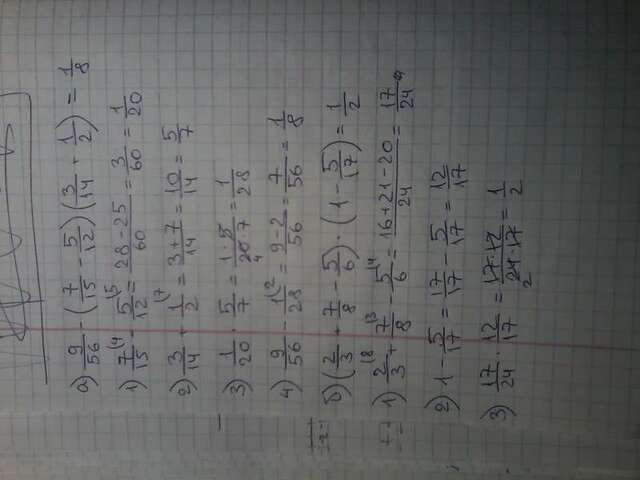 а) 9/56 - (7/15 - 5/12)(3/14 + 1/2) = 1/8
1) 7/15 \4 - 5/12 \5 = 28-25/60 = 3/60 = 1/20
2) 3/14 + 1/2 \7 = 3+7/14 = 10/14 = 5/7
3) 1/20 · 5/7 = 1·5/20·7 4 = 1/28
4) 9/56 - 1/28 \2 = 9-2/56 = 7/56 = 1/8
б) (2/3 + 7/8 - 5/6) · (1 - 5/17) = 1/2
1) 2/3 \8 + 7/8 \3 - 5/6 \4 = 16+21-20/24 = 17/24
2) 1 - 5/17 = 17/17 - 5/17 = 12/17
3) 17/24 · 12/17 = 17·12/24·17 2 = 1/2